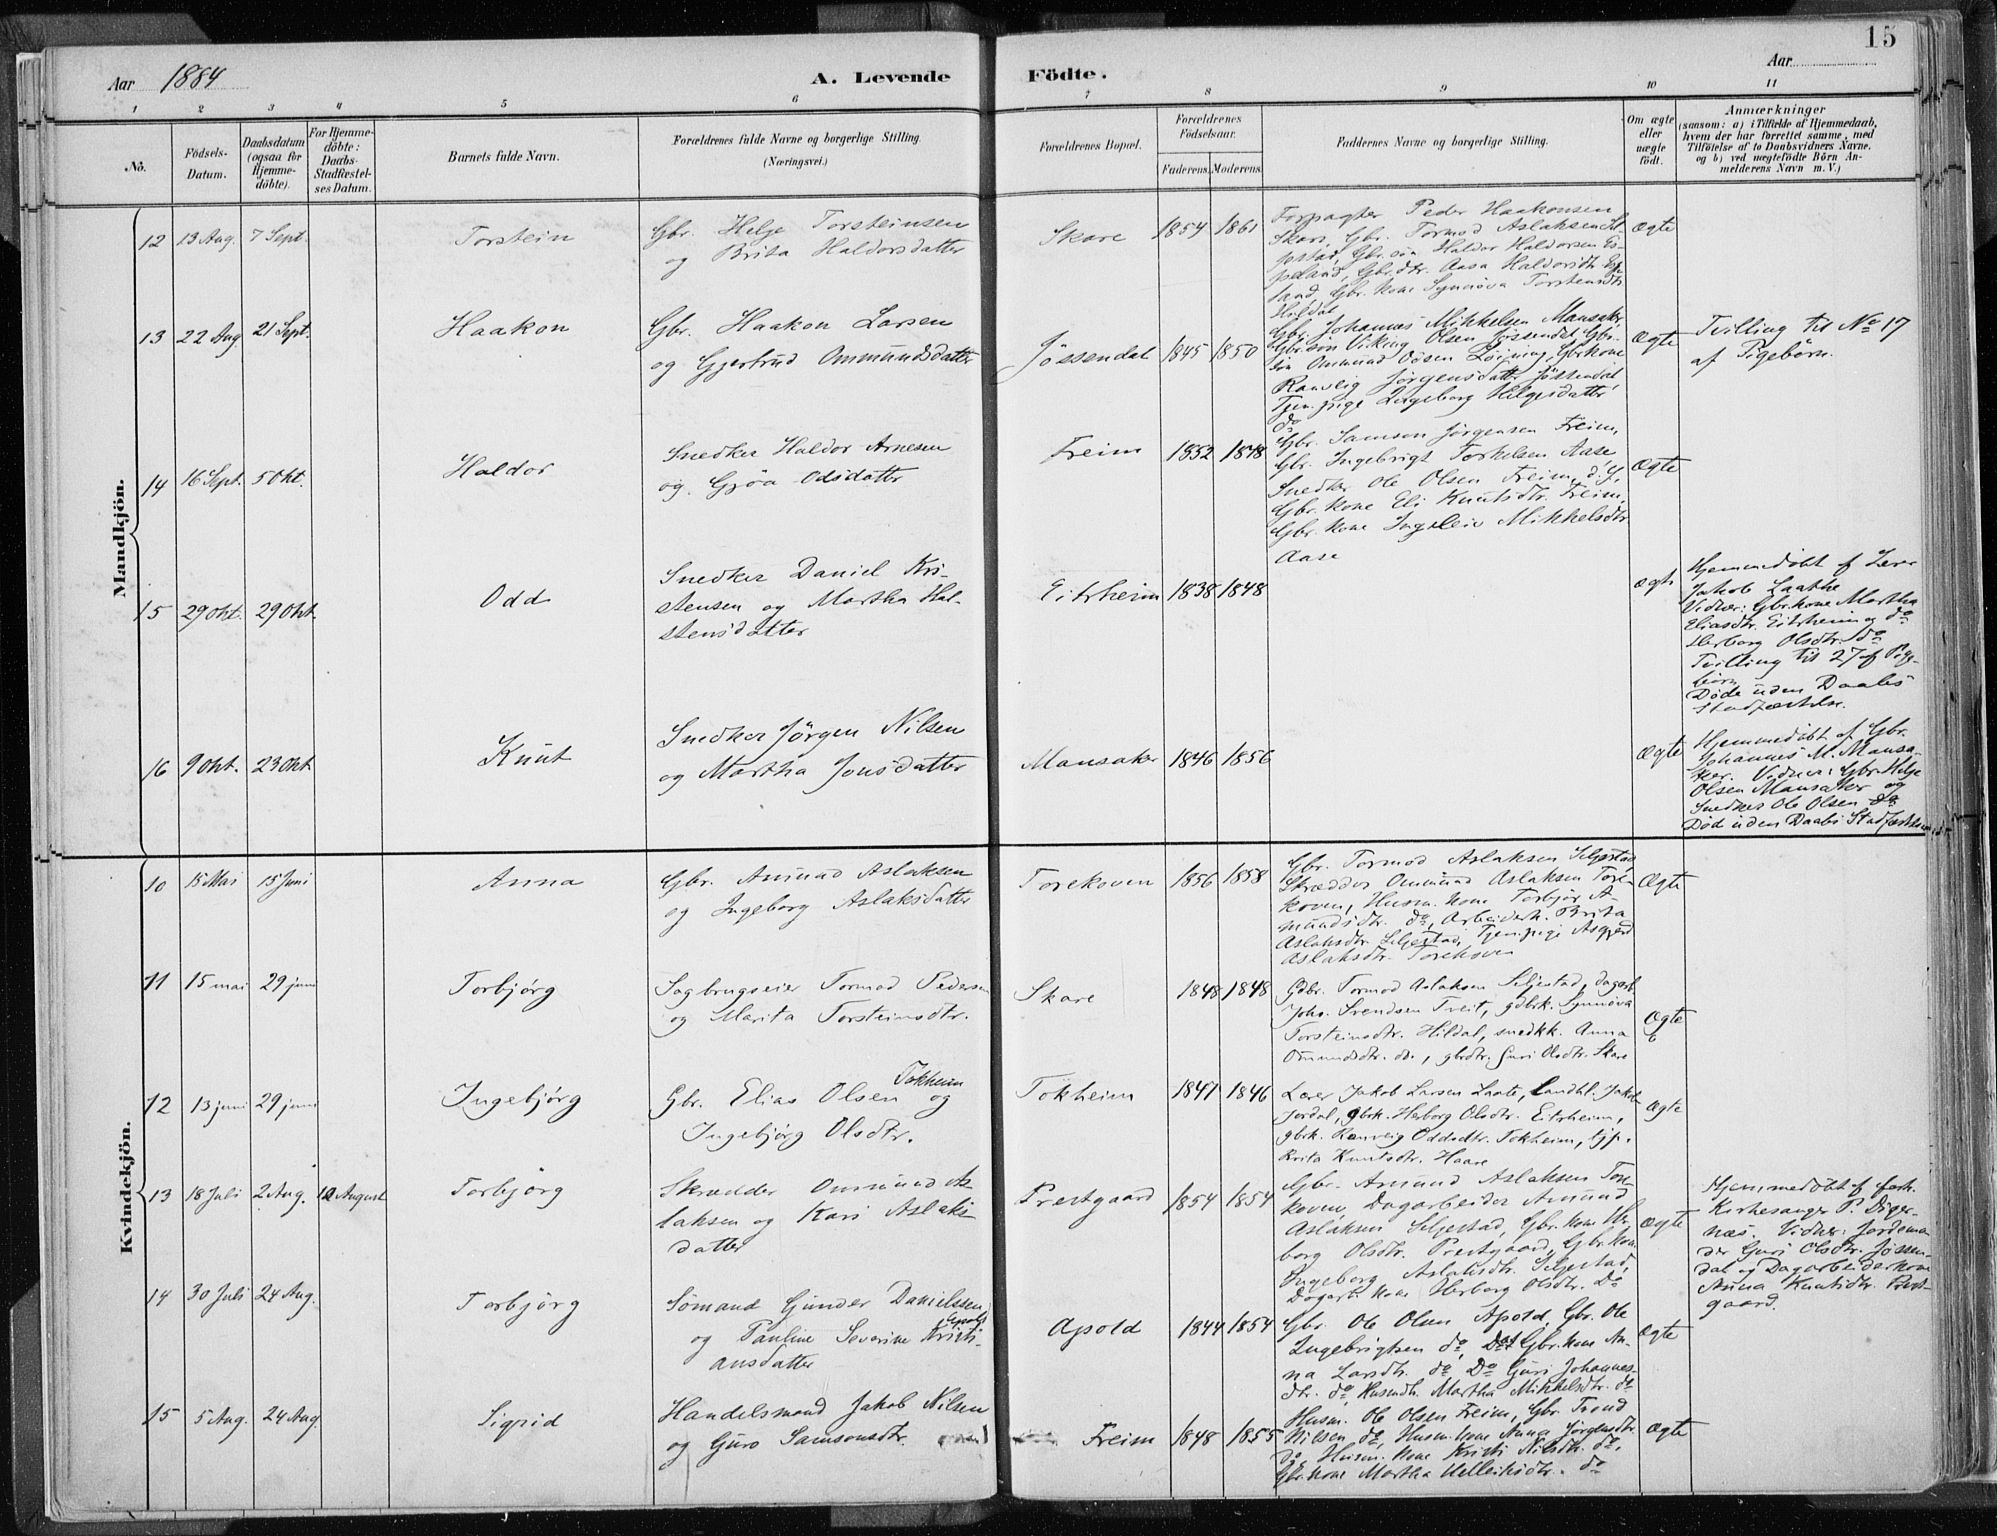 15
Aar 1884
A. Levende Födte.
Aar
1 2 3 4 5 6 7 8 9 10 11
No.
Födsels-
Datum.
Daabsdatum
(ogsaa for
Hjemme-
döbte).
For Hjemme-
döbte:
Daabs-
Stadfæstel-
ses Datum.
Barnets fulde Navn.
Forældrenes fulde Navne og borgerlige Stilling.
(Næringsvei.)
Forældrenes Bopæl.
Forældrenes
Födselsaar.
Faderens. Moderens.
Faddernes Navne og borgerlige Stilling.
Om ægte
eller
uægte
født.
Anmærkninger
(sansom: a) i Tilfælde af Hjemmedaab,
hvem der har forrettet samme, med
Tilföielse af to Daabsvidners Navne,
og b) ved uægtefödte Börn An-
melderens Navn m. V.)
Mandkjön.
12 13 Aug. 7 Sept. Torstein
Gbr. Helje Torsteinsen
og Brita Haldorsdatter
Skare 1854 1861
Forpagter Peder Haakonsen
Skare, Gbr. Tormod Aslaksen Sil-
jestad, Gbr. sön Haldor Haldorsen Es-
peland, Gbr. dtr. Aasa Haldorsdtr. Espe-
land, Gbr. kone Synnöva Torsteinsdtr.
Hildal
Ægte
13 22 Aug. 21 Sept. Haakon
Gbr. Haakon Larsen
og Gjertrud Ommundsdatter
Jössendal 1845 1850
Gbr. Johannes Mikkelsen Mansaker,
Gbr. sön Viking Olsen Jössendal, Gbr.
sön Ommund Odsen Löining, Gbr. kone
Ranveig Jörgensdatter Jössendal,
Tjen. pige Ingeborg Helgesdatter
do
Ægte
Tvilling til No 17
af Pigebörn.
14 16 Sept. 5 Okt. Haldor
Snedker Haldor Arnesen
og Gjöa Odsdatter
Freim 1852 1848
Gbr. Samson Jörgensen Freim,
Gbr. Ingebrigt Torkelsen Aase
Snedker Ole Olsen Freim, d. y.,
Gbr. kone Eli Knutsdtr. Freim,
Gbr. kone Ingeleiv Mikkelsdtr.
Aase
Ægte
15 29 Okt. 29 Okt. Odd
Snedker Daniel Kri-
stensen og Martha Hal-
stensdatter
Eitrheim 1838 1848
Ægte
Hjemmedöbt af Lærer
Jakob Laathe
Vidner: Gbr. kone Martha
Eliasdtr. Eitrheim og do
Herborg Olsdtr. do
Tvilling til 27 af Pige-
börn
Döde uden Daabs
Stadfæstelse.
16 9 Okt. 23 Okt Knut
Snedker Jörgen Nilsen
og Martha Jonsdatter
Mansaker 1846 1856
Ægte
Hjemmedöbt af Gbr.
Johannes M. Mansa-
ker. Vidner: Gbr. Helje
Olsen Mansaker og
Snedker Ole Olsen do
Död uden Daabs Stadfæstelse
Kvindekjön.
10 15 Mai 15 Juni Anna
Gbr. Amund Aslaksen
og Ingeborg Aslaksdatter
Torekoven 1856 1858
Gbr. Tormod Aslaksen Seljestad
Skrædder Ommund Aslaksen Tore-
koven, Husm. kone Torbjör A-
mundsdtr. do, Arbeiderk. Brita
Aslaksdtr. Seljestad, Tjen. pige Asgjerd
Aslaksdtr. Torekoven
Ægte
11 15 mai 29 juni Torbjörg
Sagbrugseier Tormod Pedersen
og Marita Torsteinsdtr.
Skare 1848 1848
Gdbr. Tormod Aslaksen Seljestad, dagarb.
Johs. Svendsen Freit, gdbrk. Synnöva
Torsteinsdtr. Hildal, snedkk. Anna
Ommundsdtr. do., gbrdtr. Guri Olsdtr. Skare
Ægte
12 13 juni 29 juni Ingebjörg
Gbr. Elias Olsen Tokheim og
Ingebjörg Olsdtr.
Tokheim 1847 1846
Lærer Jakob Larsen Laate, Landhl. Jakob
Jordal, gbrk. Herborg Olsdtr. Eitrheim,
gbrk. Ranveig Oddsdtr. Tokheim, tjp.
Brita Knutsdtr. Haare
Ægte
13 18 Juli 2 Aug. 12 August Torbjörg
Skrædder Ommund As-
laksen og Kari Aslaks-
datter
Prestgaard 1854 1854
Gbr. Amund Aslaksen Tore-
koven, Dagarbeider Amund
Aslaksen Seljestad, Gbr. kone Her-
borg Olsdtr. Prestgaard, Gbr. kone
Ingeborg Aslaksdtr. Seljestad,
Dagarb. kone Herborg Olsdtr. Do
Ægte
Hjemmedöbt af forh.
Kirkesanger P. Diger-
næs. Vidner: Jordemo-
der Guri Olsdtr. Jössen-
dal og Dagarbeiderkone
Anna Knutsdtr. Prest-
gaard.
14 30 Juli 24 Aug. Torbjörg
Sömand Gunder Danielssen
Apold
og Pauline Severine Kristi-
ansdatter
Apold 1844 1854
Gbr. Ole Olsen Apold, Gbr. Ole
Ingebrigtsen do, Gbr. kone An-
na Larsdtr. do, Do Guri Johannes-
dtr. do, Husmdtr. Martha Mikkelsdtr. do
Ægte
15 5 Aug. 24 Aug. Sigrid
Handelsmand Jakob Nilsen
og Guro Samsonsdtr.
Freim 1848 1855
Husm. Ole Olsen Freim, Gbr. Trond
Nilsen do, Husm. kone Anna Jörgensdtr.
do, Husm. kone Kristi Nilsdtr. do,
Gbr. kone Martha Helleiksdtr. do
Ægte